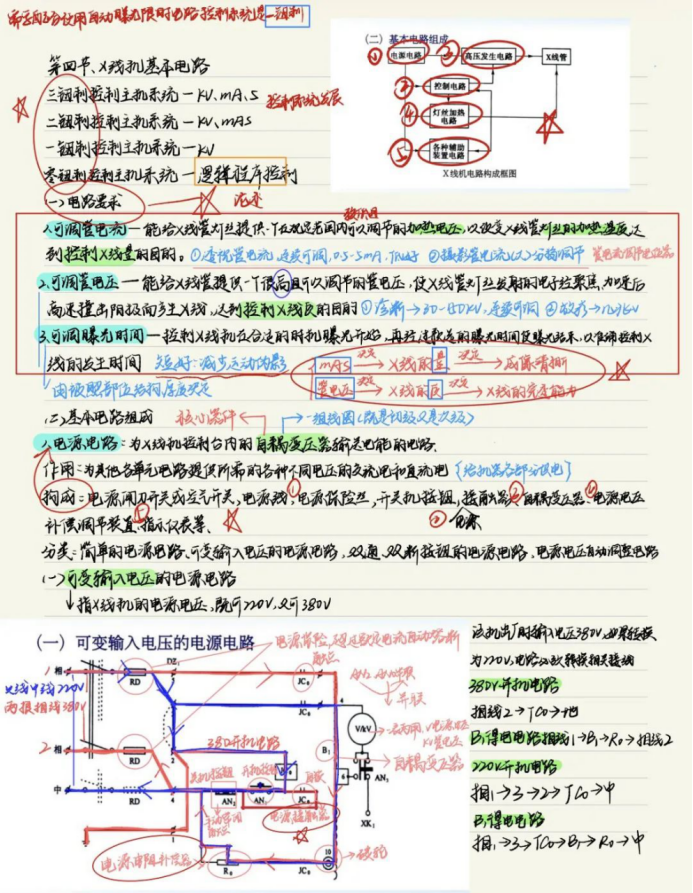 需要配合使用自动曝光限时电路,控制系统是一钮制
(二) 基本电路组成
① 电源电路 ③ 高压发生电路 X线管
② 控制电路
④ 灯丝加热电路
⑤ 各种辅助装置电路
X线机电路构成框图
第四节、X线机基本电路
三钮制控制主机系统—KV、mA、S
控制系统发展
二钮制控制主机系统—KV、mAS
一钮制控制主机系统—KV
零钮制控制主机系统—逻辑程序控制
(一)电路要求
1.可调管电流—能给X线管灯丝提供一个在规定范围内可以调节的加热电压,以改变X线管灯丝的加热温度达
到控制X线量的目的。①透视管电流,连续可调,0.5-5mA,
②摄影管电流 分档调节
2.可调管电压—能给X线管提供一个很高且可以调节的管电压,使X线管灯丝发射的电子经聚焦、加速后
高速撞击阳极而产生X线,达到控制X线质的目的 ①诊断→30-150KV,连续可调
3.可调曝光时间—控制X线机在合适的时机曝光开始,再经过 的曝光时间使曝光结束,以准确控制X
线的发生时间 短好:减少运动伪影
mAS 决定→ X线的量 决定→ 成像清晰
由被照部位结构厚度决定
管电压 决定→ X线的质 决定→ X线的穿透能力
(二)基本电路组成 核心器件 一组线圈(既是初级又是次级)
1.电源电路:为X线机控制台内的自耦变压器输送电能的电路.
作用:为其他各单元电路提供所需的各种不同电压的交流电和直流电 (给机器各部分供电)
构成:电源闸刀开关或空气开关,电源线,电源保险丝,开关机按钮,接触器,自耦变压器、电源电压
补偿调节装置,指示仪表等.
分类:简单的电源电路、可变输入电压的电源电路,双通、双断按钮的电源电路,电源电压自动调整电路
(一)可变输入电压的电源电路
↓指X线机的电源电压,既可220V,又可380V
(一) 可变输入电压的电源电路
火线中线220V
两根相线380V
1 相 RD DZ 3 JC₀
JC₀ 4
V&V
380开机电路 B₁
自耦变压器
2 相 RD 2
中 RD 4 AN₂ AN₁ JC₀ 6 AN₃
电源接触器
XK₁
1 R₀ JC₀ 10
碳轮
该机出厂时输入电压380V,如果转换
为220V,电路必须转换相关接线
380V开机电路
相线2→JC₀→地
B₁得电电路相线1→B₁→R₀→相线2
220V开机电路
相1→3→2→JC₀→中
B₁得电电路
相1→3→JC₀→B₁→R₀→中